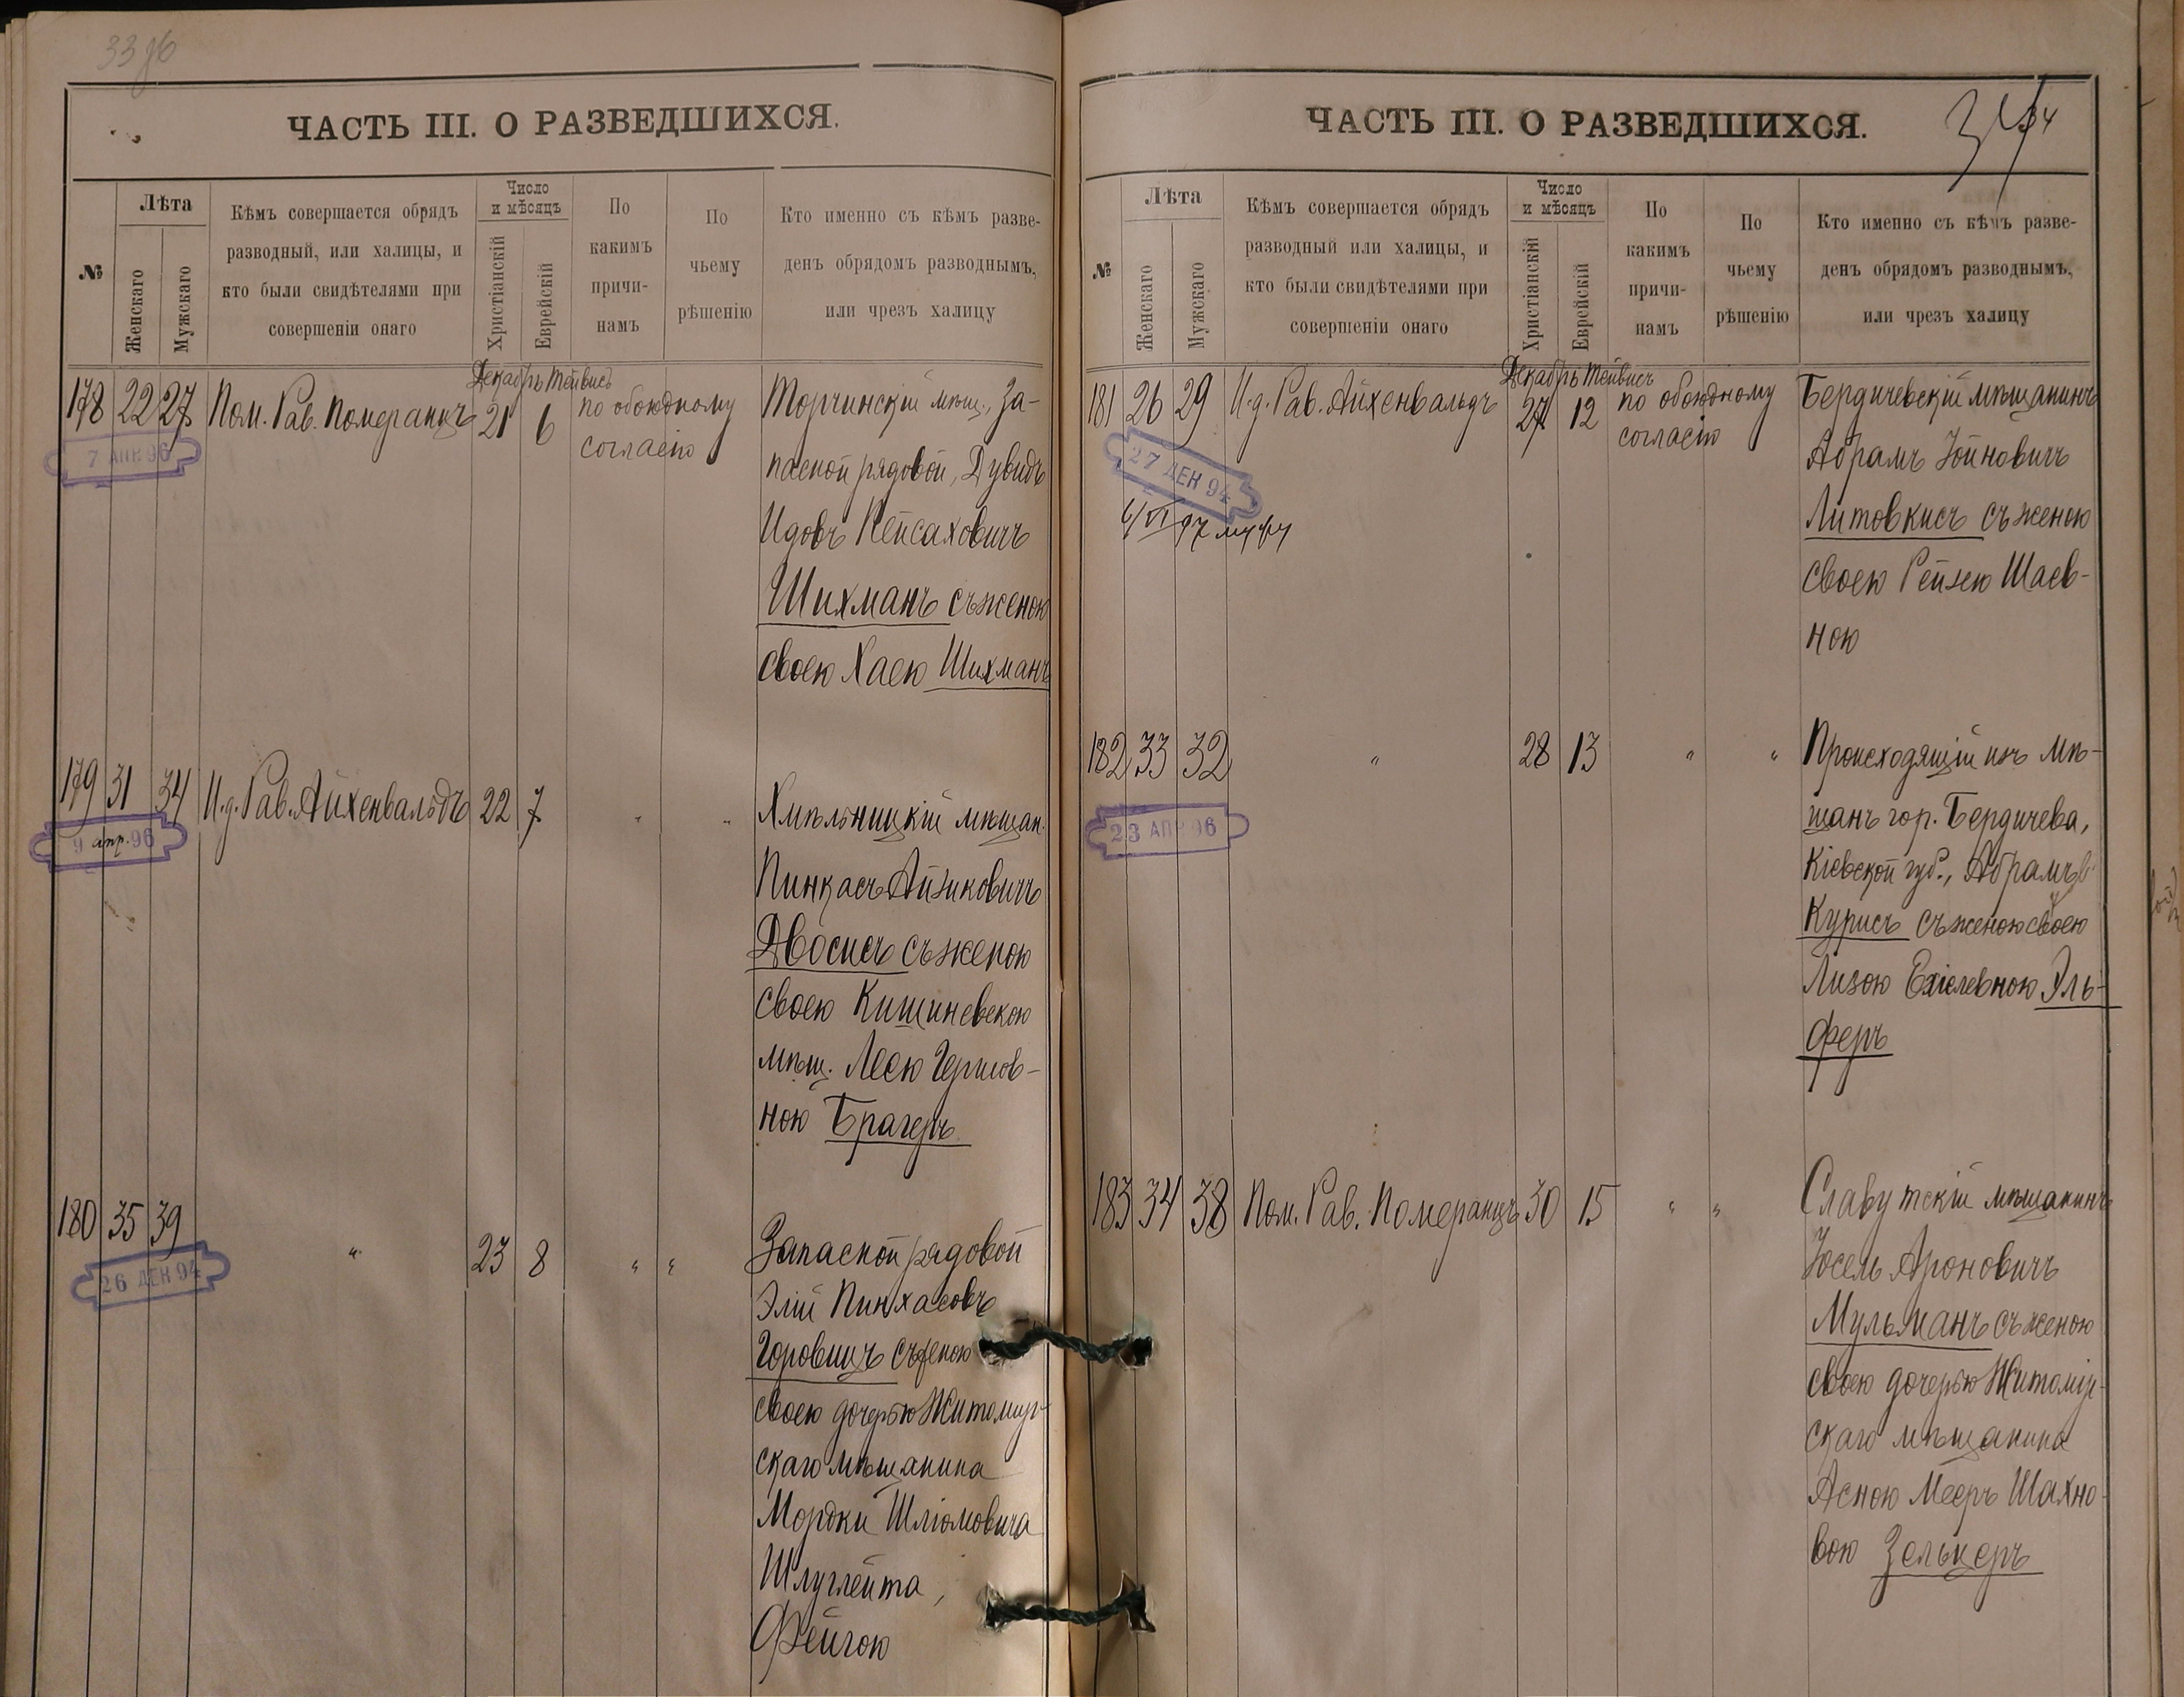 33 об
ЧАСТЬ III. О РАЗВЕДШИХСЯ.
№
Лѣта
Женскаго
Мужскаго
Кѣмъ совершается обрядъ
разводный, или халицы, и
кто были свидѣтелями при
совершеніи онаго
Число
и мѣсяцъ
Христіанскій
Еврейскій
По
какимъ
причи-
намъ
По
чьему
рѣшенію
Кто именно съ кѣмъ разве-
денъ обрядомъ разводнымъ,
или чрезъ халицу
Декабрь Тейвисъ
178 22 27 Пом. Рав. Померанцъ 21 6 по обоюдному
согласію
7 АПР 96
Торчинскій мѣщ., За-
пасной рядовой, Дувидъ
Идовъ Пейсаховичъ
Шихманъ съ женою
своею Хаею Шихманъ
179 31 34 И.д. Рав. Айхенвальдъ 22 7 " "
9 апр. 96
Хмѣльницкій мѣщан.
Пинкасъ Айзиковичъ
Двосисъ съ женою
своею Кишиневскою
мѣщ. Леею Гершов-
ною Брагеръ
180 35 39 " 23 8 " "
26 ДЕК 94
Запасной рядовой
Элій Пинхасовъ
Горовицъ съ женою
своею дочерью Житомир-
скаго мѣщанина
Мордки Шліомовича
Шлуглейта,
Фейгою
ЧАСТЬ III. О РАЗВЕДШИХСЯ.
34
№
Лѣта
Женскаго
Мужскаго
Кѣмъ совершается обрядъ
разводный или халицы, и
кто были свидѣтелями при
совершеніи онаго
Число
и мѣсяцъ
Христіанскій
Еврейскій
По
какимъ
причи-
намъ
По
чьему
рѣшенію
Кто именно съ кѣмъ разве-
денъ обрядомъ разводнымъ,
или чрезъ халицу
Декабрь Тейвисъ
181 26 29 И.д. Рав. Айхенвальдъ 27 12 по обоюдному
согласію
27 ДЕК 94
6/VI 97
Бердичевскій мѣщанинъ
Абрамъ Іойновичъ
Литовкисъ съ женою
своею Рейзею Шаев-
ною
182 33 32 " 28 13 " "
23 АПР 96
Происходящій изъ мѣ-
щанъ гор. Бердичева,
Кіевской губ., Абрамъ
Курисъ съ женою своею
Лизою Ехіелевною Эль-
феръ
183 34 38 Пом. Рав. Померанцъ 30 15 " "
Славутскій мѣщанинъ
Іосель Ароновичъ
Мульманъ съ женою
своею дочерью Житомір-
скаго мѣщанина
Асною Мееръ Шахно-
вою Зельцеръ